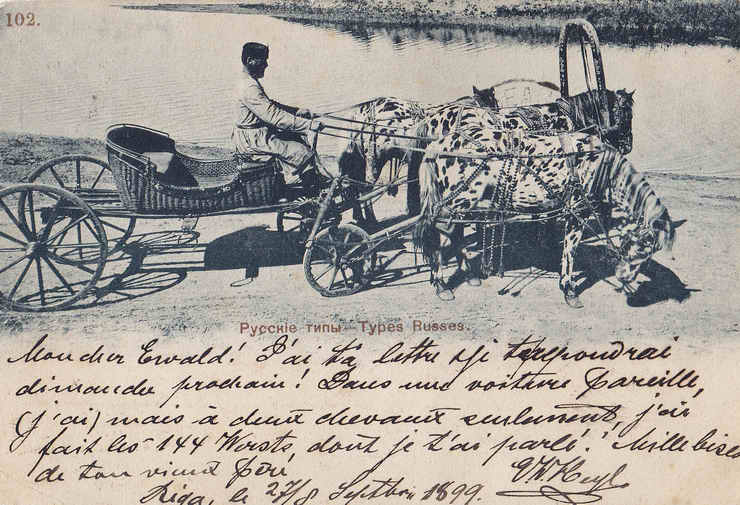 102.
Русскіе типы — Types Russes.
Mon cher Ewald! J'ai ta lettre et je te repondrai
dimanche prochain! Dans une voiture pareille,
(j'ai) mais à deux chevaux seulement, j'ai
fait les 144 Wersts, dont je t'ai parlé! Mille bises
de ton vieux
Riga, le 27/8 Septbre 1899.